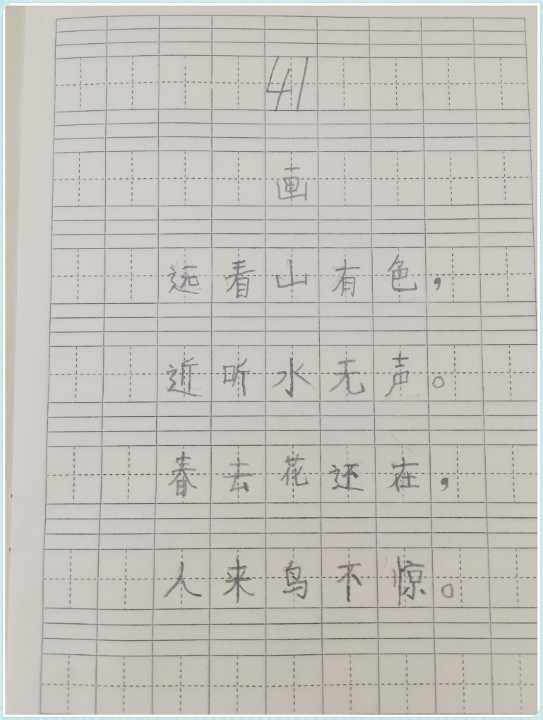 41
画
远看山有色，
近听水无声。
春去花还在，
人来鸟不惊。